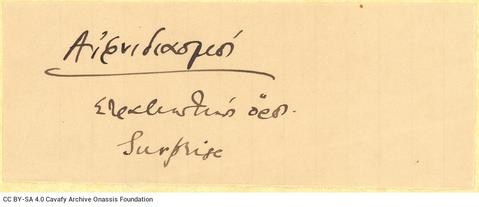 Αἰφνιδιασμοί
Στρατιωτικός ὅρος.
Surprise
CC BY-SA 4.0 Cavafy Archive Onassis Foundation